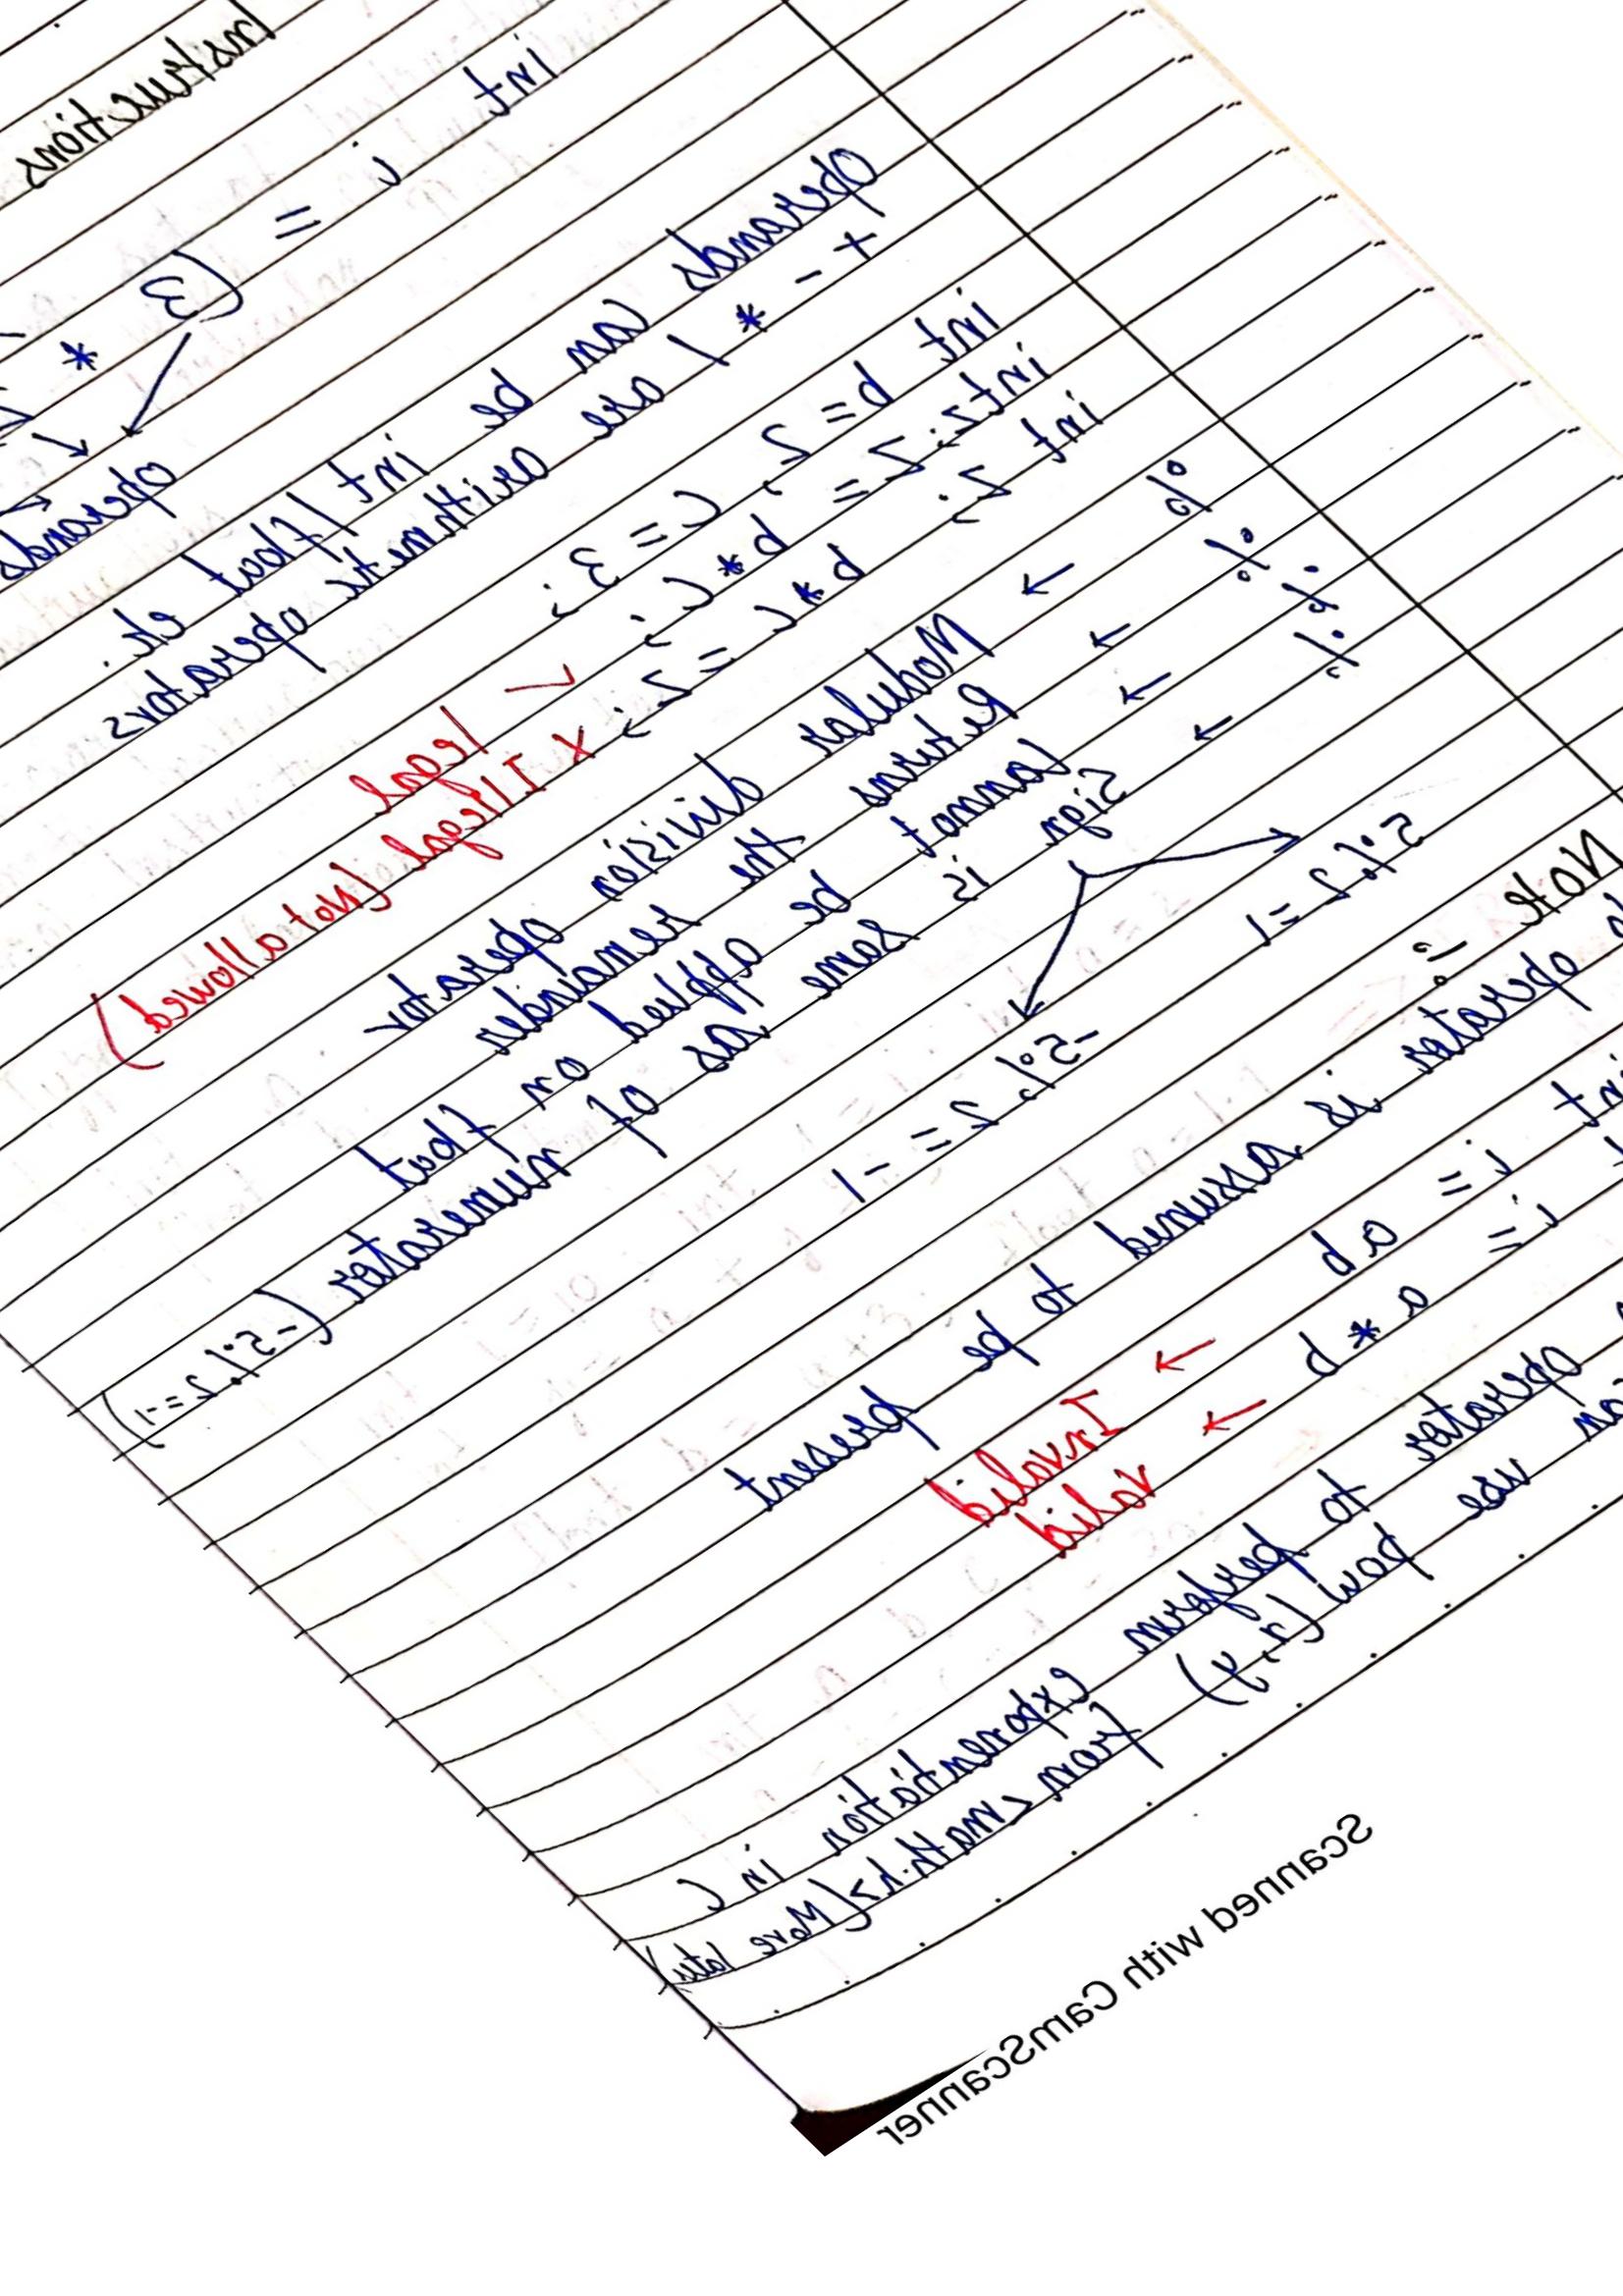 Instructions
int i = (3 *
operands
Operands can be int/float etc.
+ - * / are arithmetic operators
int b = 2, c = 3;
int z; z = b*c; ✓ legal
int z; b*c = z; x Illegal (not allowed)
% → Modular division operator
% → Returns the remainder
% → Cannot be applied on float
% → Sign is same as of numerator (-5%2=-1)
5%2=1
-5%2=-1
Note :-
operator is assumed to be present
int i = ab → Invalid
i = a * b → valid
operator to perform exponentiation in C
use pow(x,y) from <math.h> (More later)
Scanned with CamScanner